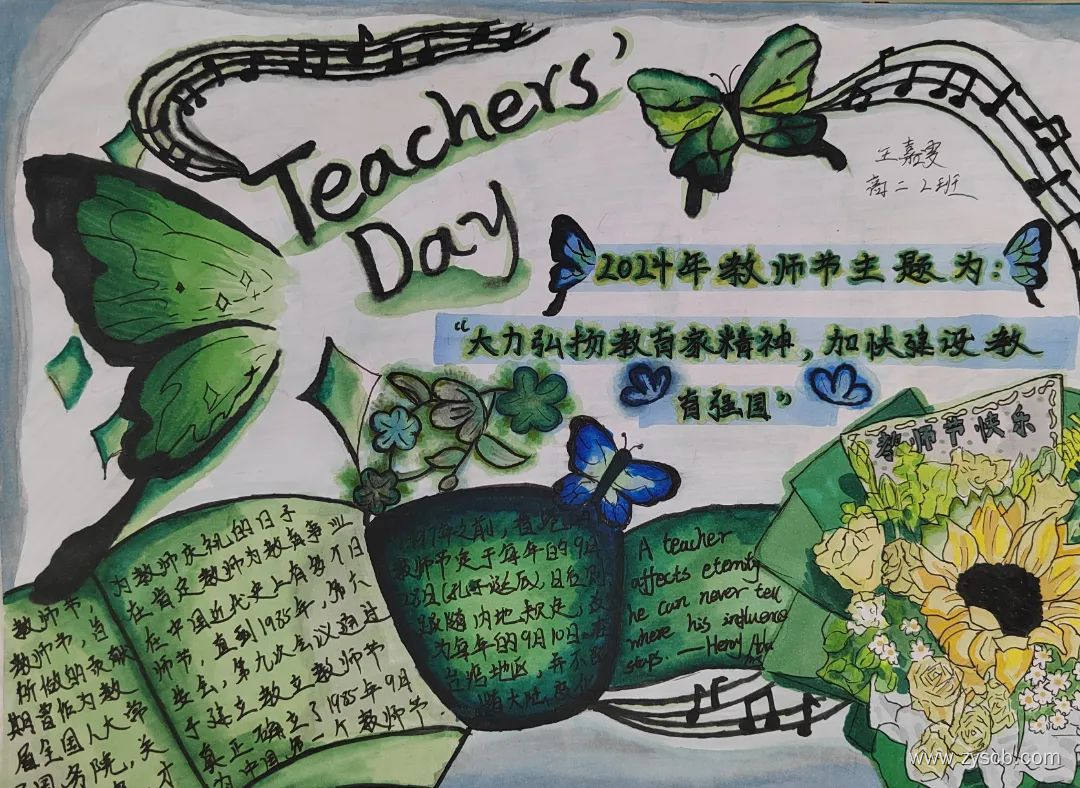 Teachers'
Day
王嘉雯
高二2班
2024年教师节主题为:
"大力弘扬教育家精神,加快建设教
育强国"
教师节快乐
教师节,
教师节,
所做的贡献
期曾作为教
届全国人大常
国务院,关
为教师庆祝的日子
在肯定教师为教育事业
在中国近代史上有多个日
师节,直到1985年,第六
委会,第九次会议通过
于建立教立教师节
真正确立了1985年9月
为中国第一个教师节
97年之前,
教师节定于每年的9月
28日(孔子诞辰),日
跟随内地规定,
为每年的9月10日.
台湾地区,并不
随大陆
A teacher
affects eternity
he can never tell
where his influence
stops. —Henry
www.zyscb.com